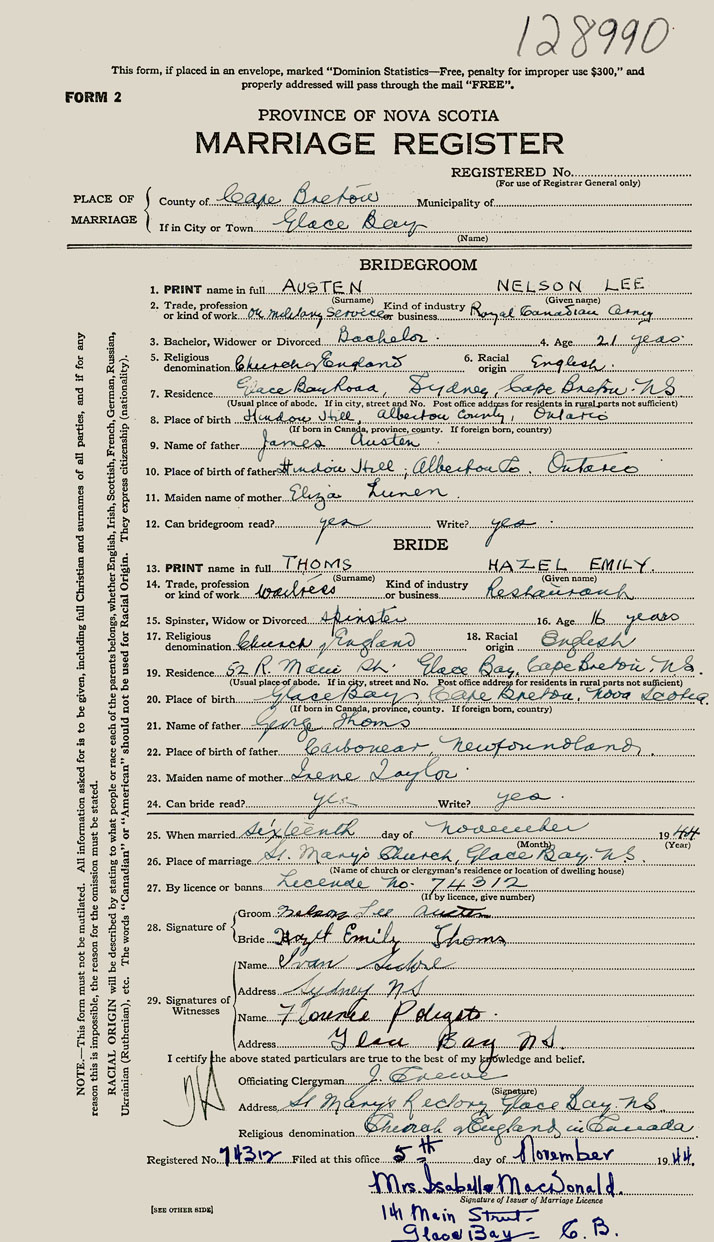 128990
This form, if placed in an envelope, marked “Dominion Statistics—Free, penalty for improper use $300,” and
properly addressed will pass through the mail “FREE”.
FORM 2
PROVINCE OF NOVA SCOTIA
MARRIAGE REGISTER
REGISTERED No.
(For use of Registrar General only)
PLACE OF MARRIAGE
County of Cape Breton Municipality of
If in City or Town Glace Bay
(Name)
BRIDEGROOM
1. PRINT name in full AUSTEN NELSON LEE
(Surname) (Given name)
2. Trade, profession or kind of work On military service Kind of industry or business Royal Canadian Army
3. Bachelor, Widower or Divorced Bachelor. 4. Age 21 years
5. Religious denomination Church of England 6. Racial origin English.
7. Residence Glace Bay Road, Sydney, Cape Breton. N.S.
(Usual place of abode. If in city, street and No. Post office address for residents in rural parts not sufficient)
8. Place of birth Hindon Hill, Alberton County, Ontario
(If born in Canada, province, county. If foreign born, country)
9. Name of father James Austen
10. Place of birth of father Hindon Hill, Alberton Co. Ontario
11. Maiden name of mother Eliza Lunen.
12. Can bridegroom read? yes Write? yes.
BRIDE
13. PRINT name in full THOMS HAZEL EMILY.
(Surname) (Given name)
14. Trade, profession or kind of work waitress Kind of industry or business Restaurant
15. Spinster, Widow or Divorced Spinster 16. Age 16 years
17. Religious denomination Church of England 18. Racial origin English
19. Residence 52 R. Main St. Glace Bay, Cape Breton. N.S.
(Usual place of abode. If in city, street and No. Post office address for residents in rural parts not sufficient)
20. Place of birth Glace Bay, Cape Breton, Nova Scotia.
(If born in Canada, province, county. If foreign born, country)
21. Name of father George Thoms
22. Place of birth of father Carbonear, Newfoundland.
23. Maiden name of mother Irene Taylor.
24. Can bride read? yes Write? yes.
25. When married sixteenth day of November 1944
(Month) (Year)
26. Place of marriage St. Mary's Church, Glace Bay. N.S.
(Name of church or clergyman's residence or location of dwelling house)
27. By licence or banns Licence No. 74312
(If by licence, give number)
28. Signature of
Groom Nelson Lee Austen
Bride Hazel Emily Thoms
29. Signatures of Witnesses
Name Ivan
Address Sydney NS
Name Florence
Address Glace Bay NS.
I certify the above stated particulars are true to the best of my knowledge and belief.
Officiating Clergyman J.
(Signature)
Address St Mary's Rectory Glace Bay. NS.
Religious denomination Church of England in Canada.
Registered No. 74312 Filed at this office 5th day of November 1944.
Mrs. Isabelle MacDonald.
Signature of Issuer of Marriage Licence
141 Main Street.
Glace Bay C.B.
[SEE OTHER SIDE]
NOTE.—This form must not be mutilated. All information asked for is to be given, including full Christian and surnames of all parties, and if for any
reason this is impossible, the reason for the omission must be stated.
RACIAL ORIGIN will be described by stating to what people or race each of the parents belongs, whether English, Irish, Scottish, French, German, Russian,
Ukrainian (Ruthenian), etc. The words “Canadian” or “American” should not be used for Racial Origin. They express citizenship (nationality).